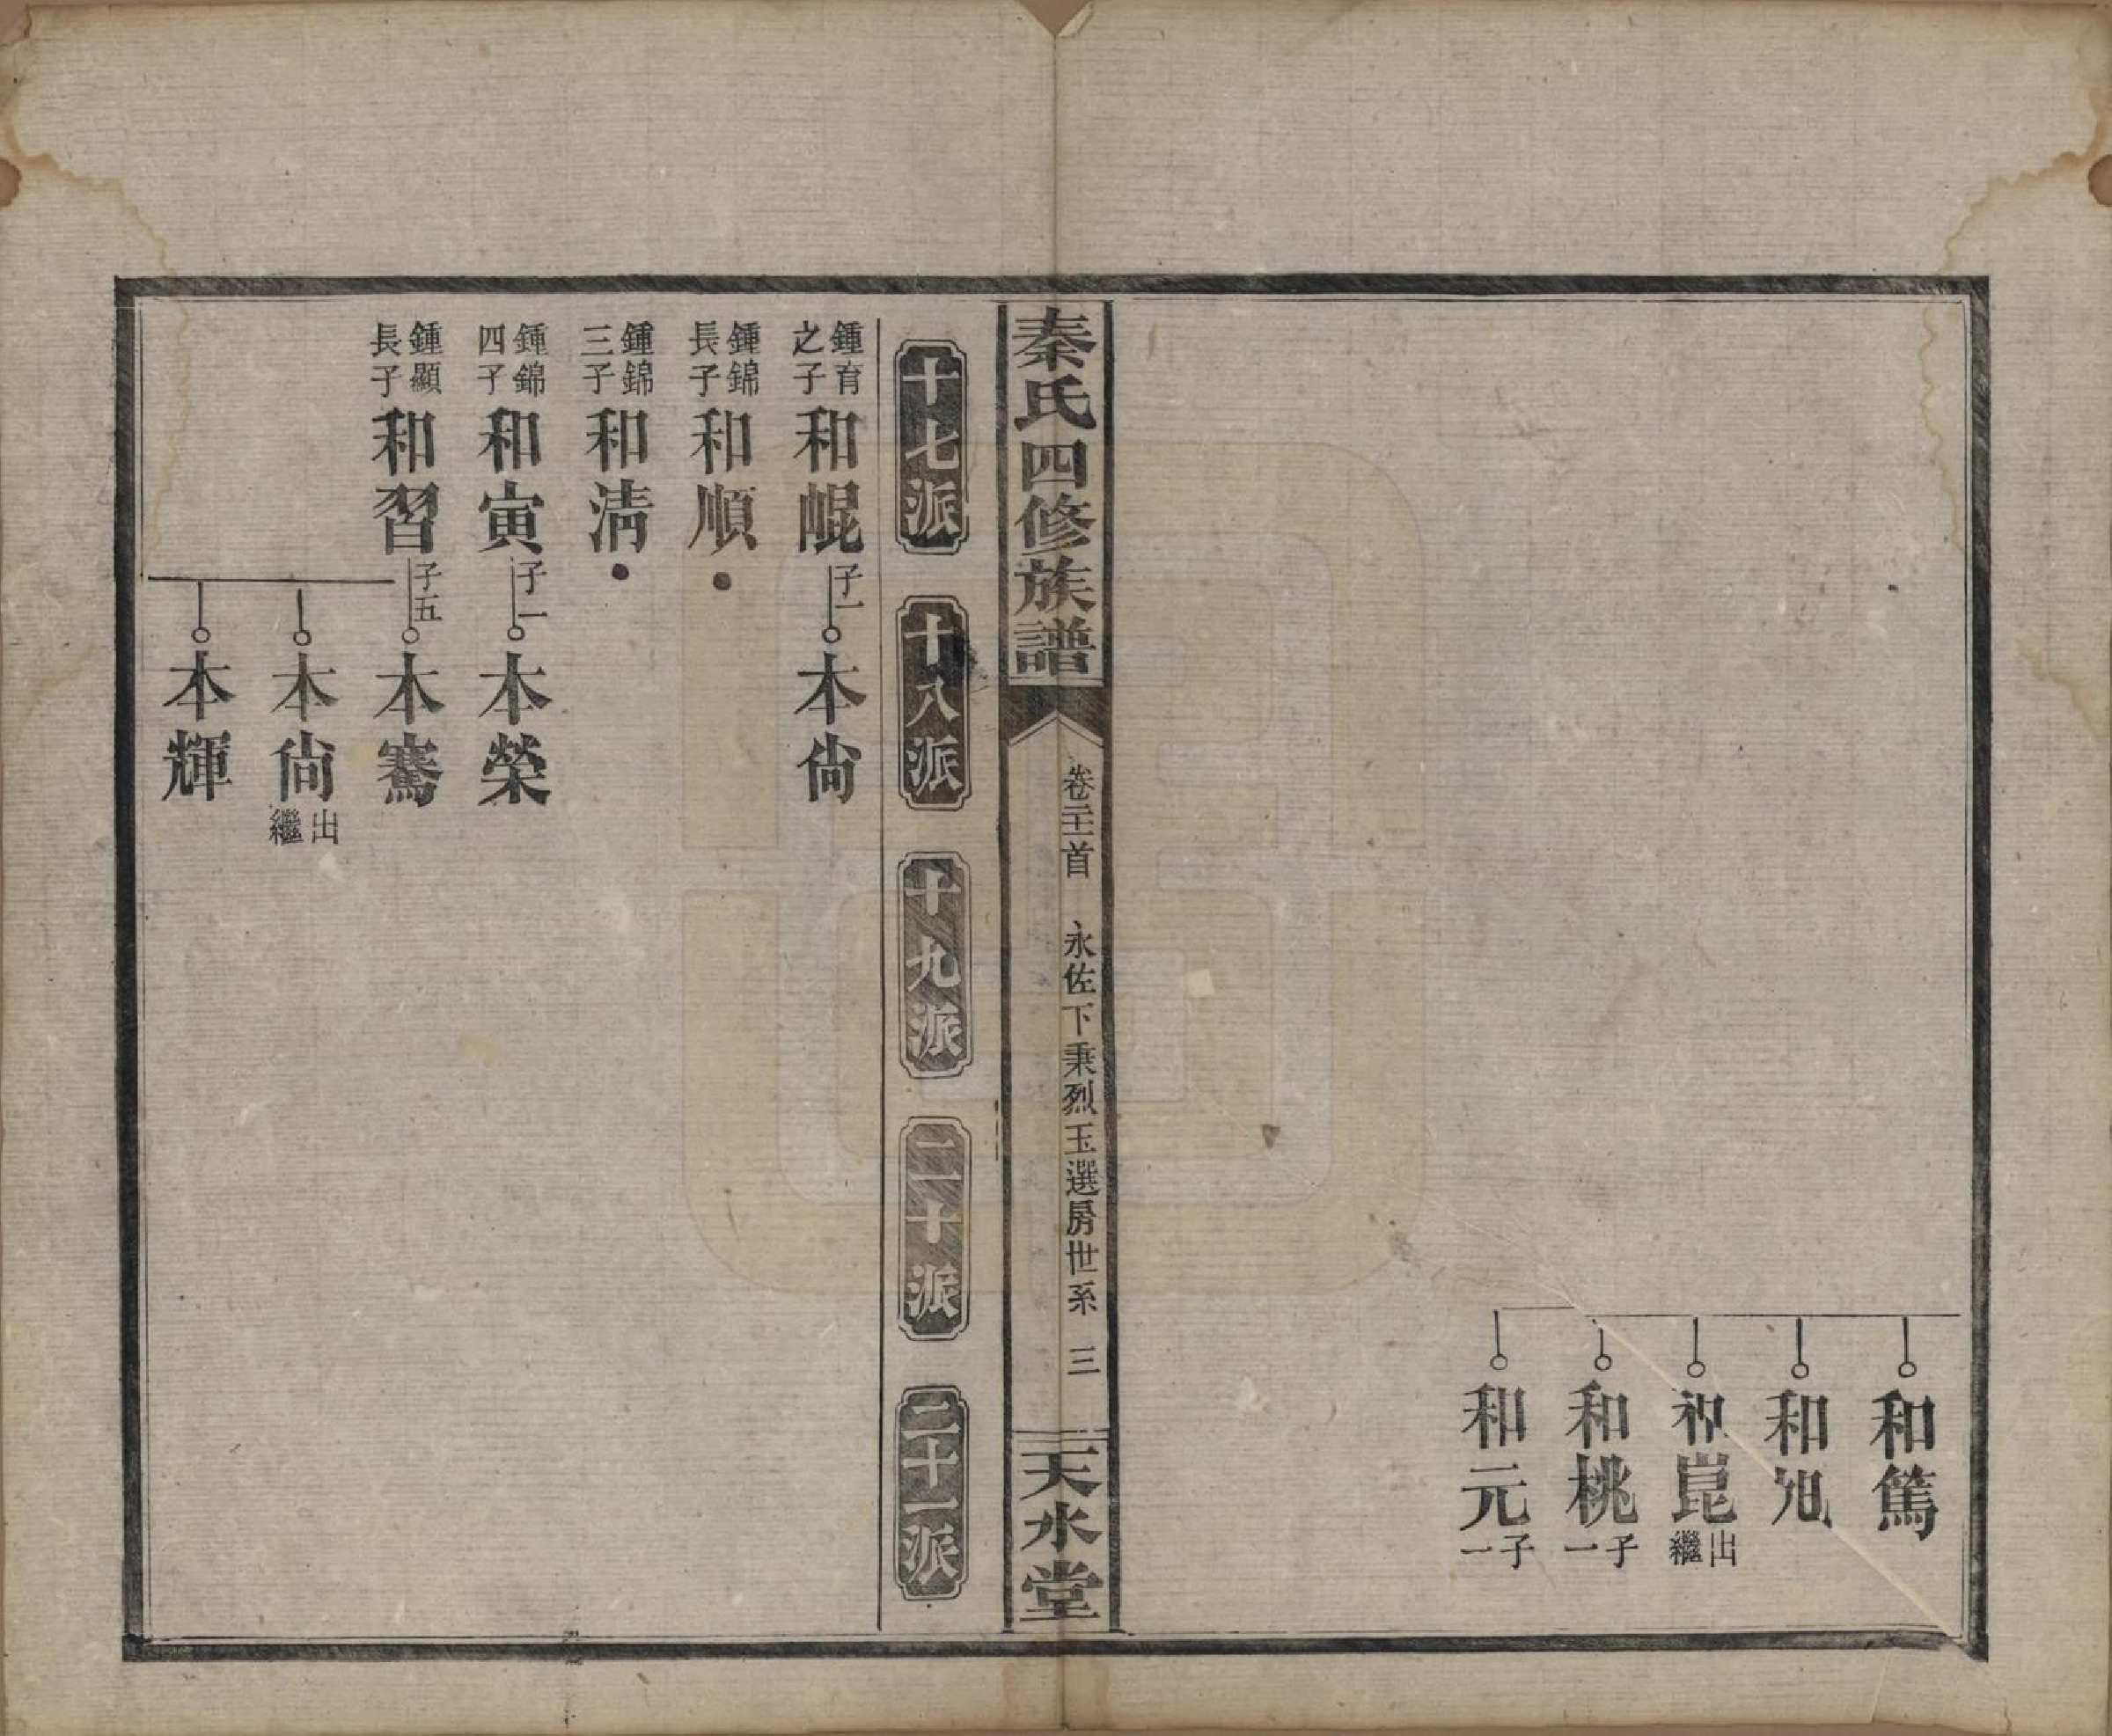 和篤
和旭
和崑 出繼
和桃 子一
和元 子一
秦氏四修族譜
卷三首 永佐下秉烈玉選房世系 三
天水堂
十七派 十八派 十九派 二十派 二十一派
鍾育之子 和崐 子一 本尙
鍾錦長子 和順
鍾錦三子 和淸
鍾錦四子 和寅 子一 本榮
鍾顯長子 和習 子五 本騫
本尙 出繼
本輝